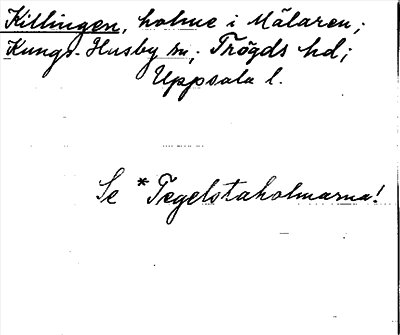 Killingen, holme i Mälaren;
Kungs-Husby sn; Trögds hd;
Uppsala l.
Se *Tegelstaholmarna!